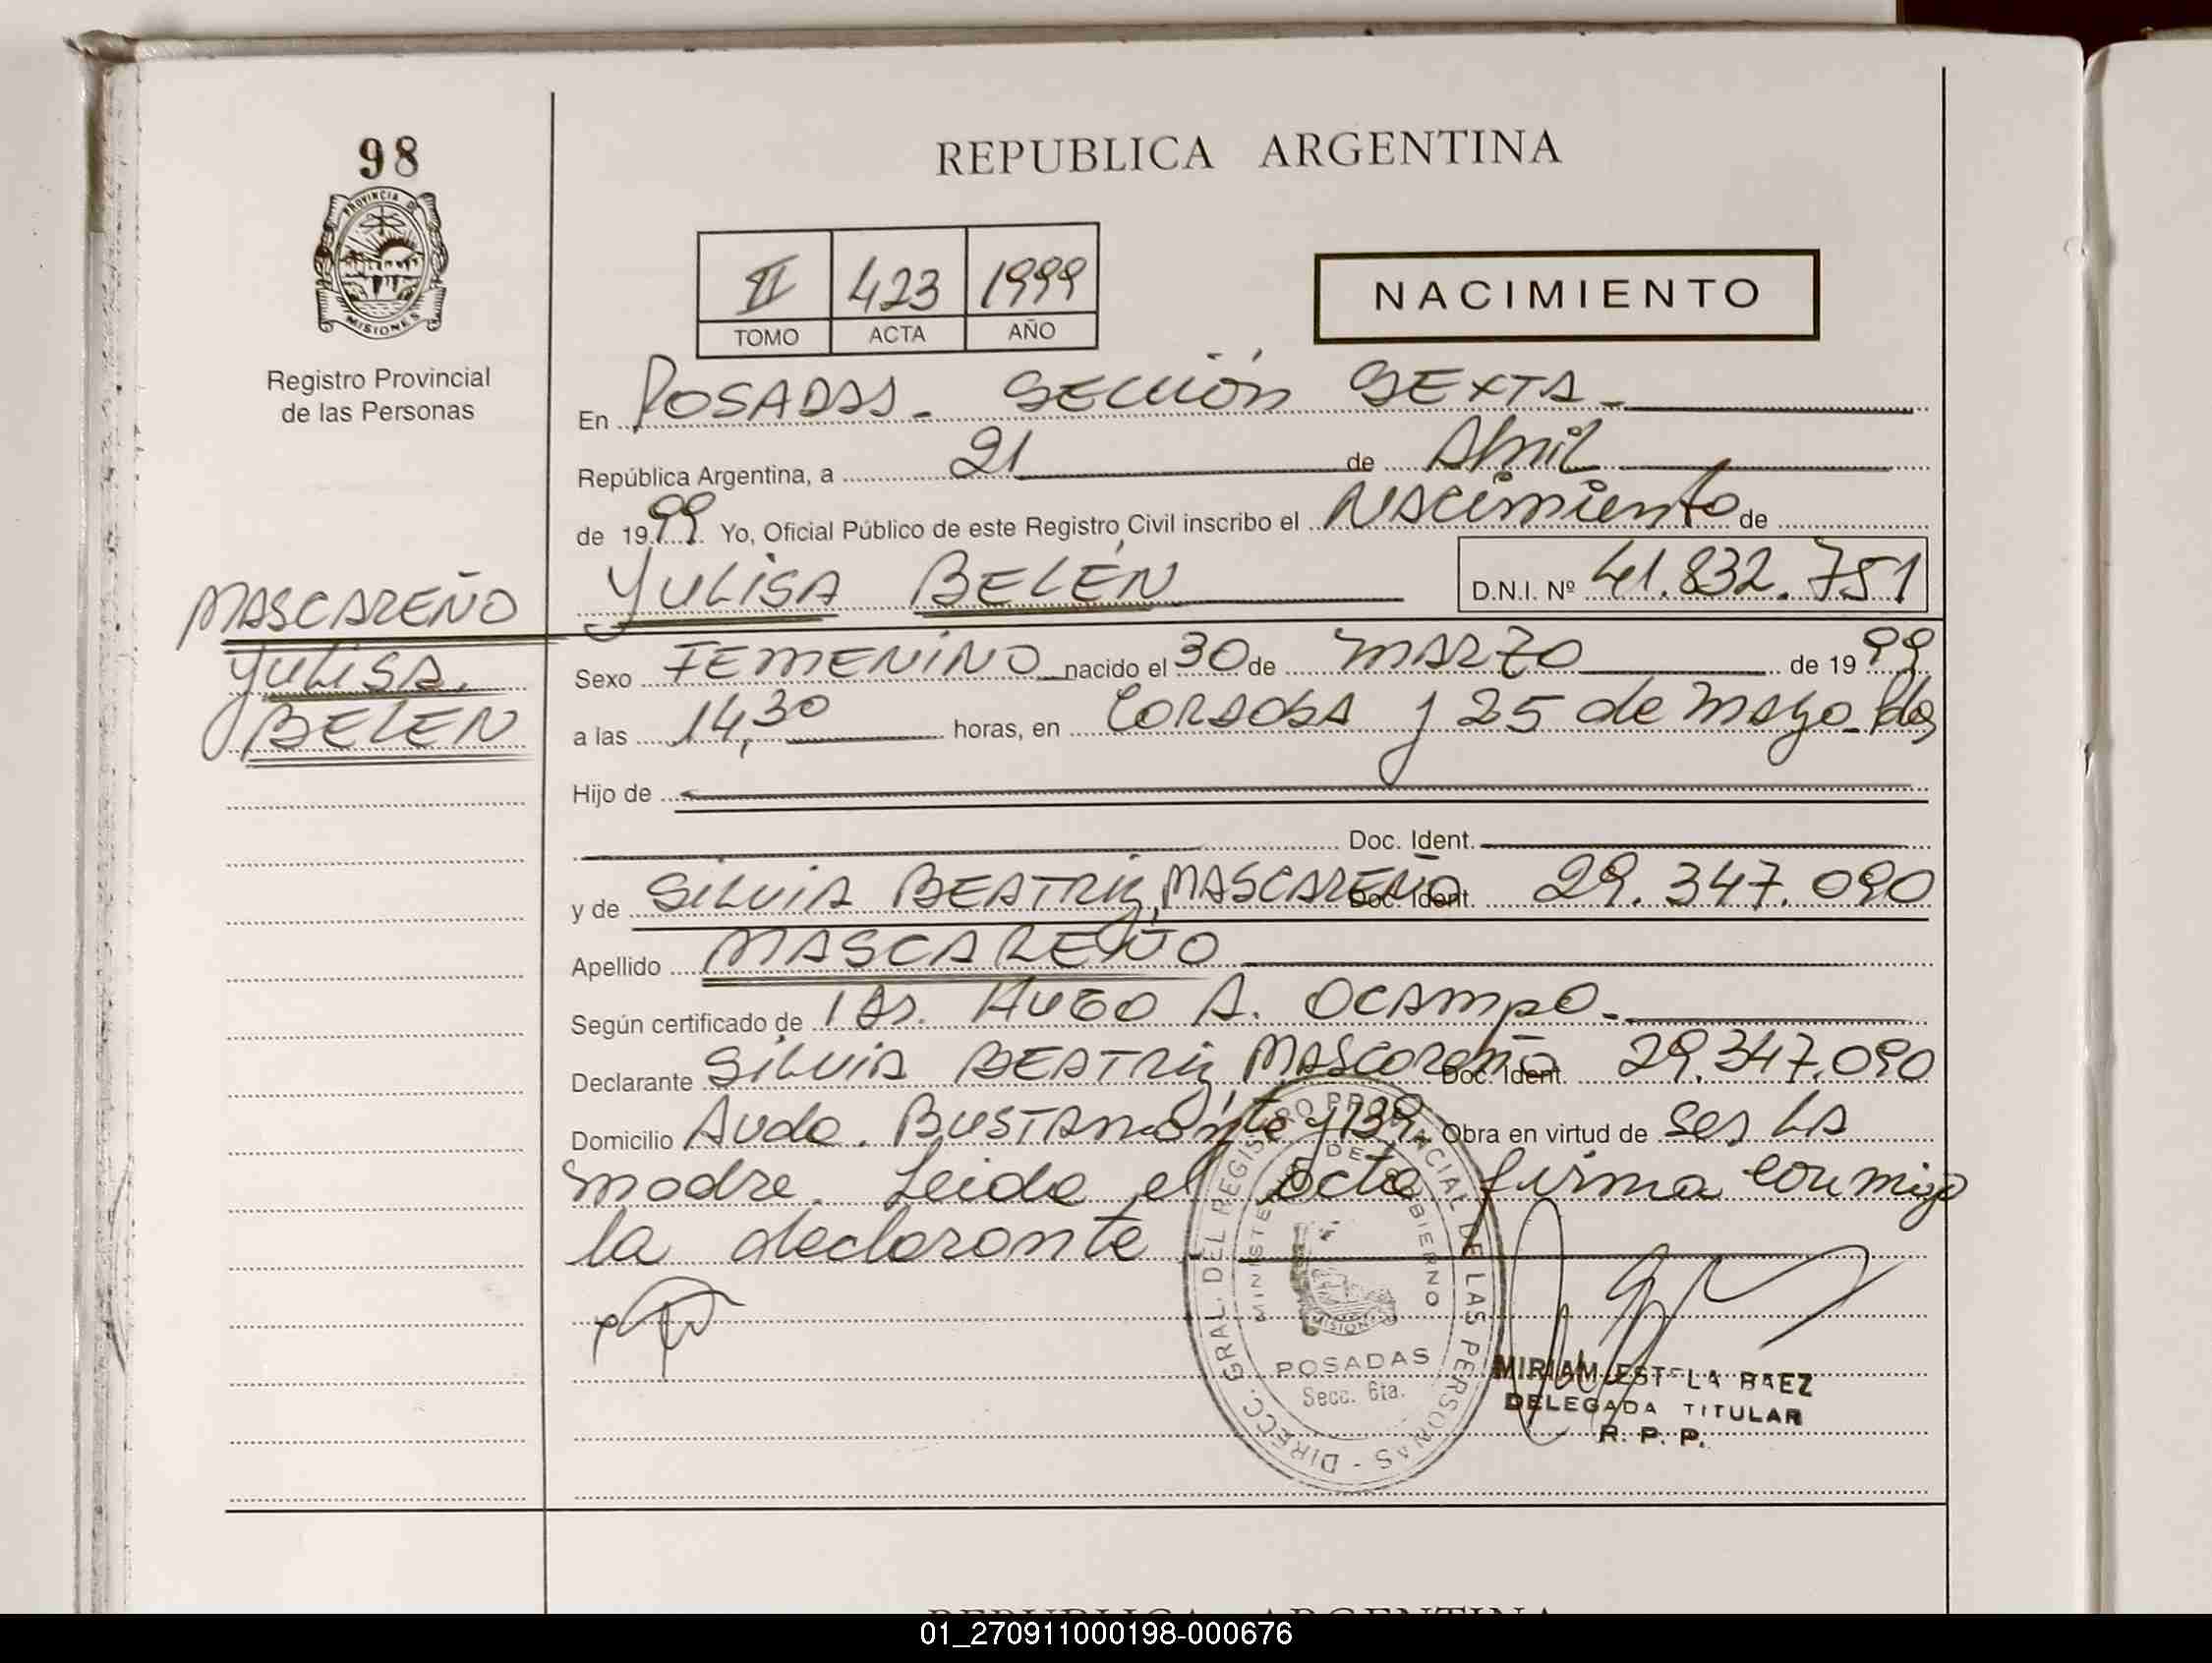 98
PROVINCIA DE
MISIONES
Registro Provincial
de las Personas
MASCAREÑO
YULISA
BELEN
REPUBLICA ARGENTINA
II 423 1999
TOMO ACTA AÑO
NACIMIENTO
En POSADAS - SECCIÓN SEXTA -
República Argentina, a 21 de Abril
de 1999 Yo, Oficial Público de este Registro Civil inscribo el Nacimiento de
YULISA BELÉN D.N.I. Nº 41.832.751
Sexo FEMENINO nacido el 30 de MARZO de 1999
a las 14,30 horas, en CORDOBA y 25 de Mayo - Pdas
Hijo de
Doc. Ident.
y de SILVIA BEATRIZ MASCAREÑO Doc. Ident. 29.347.090
Apellido MASCAREÑO
Según certificado de HUGO A. OCAMPO -
Declarante SILVIA BEATRIZ MASCAREÑO Doc. Ident. 29.347.090
Domicilio Avda. BUSTAMANTE 1139 Obra en virtud de ser LA
madre. Leida el acta firma conmigo
la declarante
DIRECC. GRAL. DEL REGISTRO PROVINCIAL DE LAS PERSONAS -
MINISTERIO DE GOBIERNO
MISIONES
POSADAS
Secc. 6ta.
MIRIAM ESTELA BAEZ
DELEGADA TITULAR
R. P. P.
REPUBLICA ARGENTINA
01_270911000198-000676